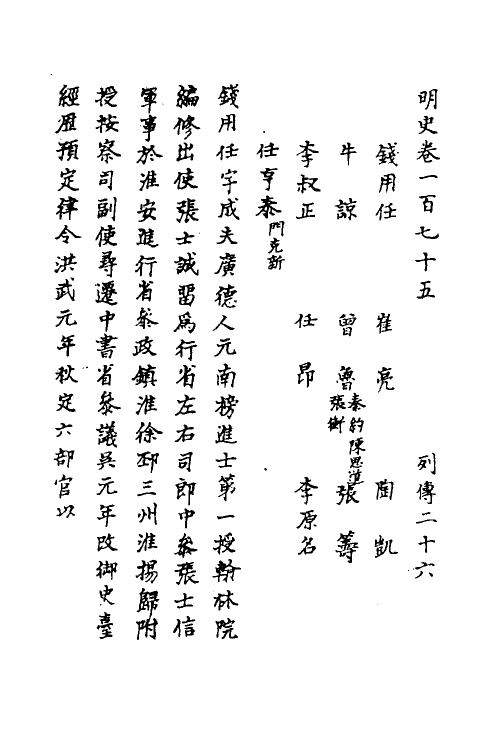 明史卷一百七十五 列傳二十六
錢用任 崔亮 陶凱
牛諒 曾魯 秦約 陳思道 張衡 張籌
李叔正 任昂 李原名
任亨泰 門克新
錢用任字成夫廣德人元南榜進士第一授翰林院
編修出使張士誠留為行省左右司郎中參張士信
軍事於淮安進行省參政鎮淮徐邳三州淮揚歸附
授按察司副使尋遷中書省參議吳元年改御史臺
經歷預定律令洪武元年秋定六部官以